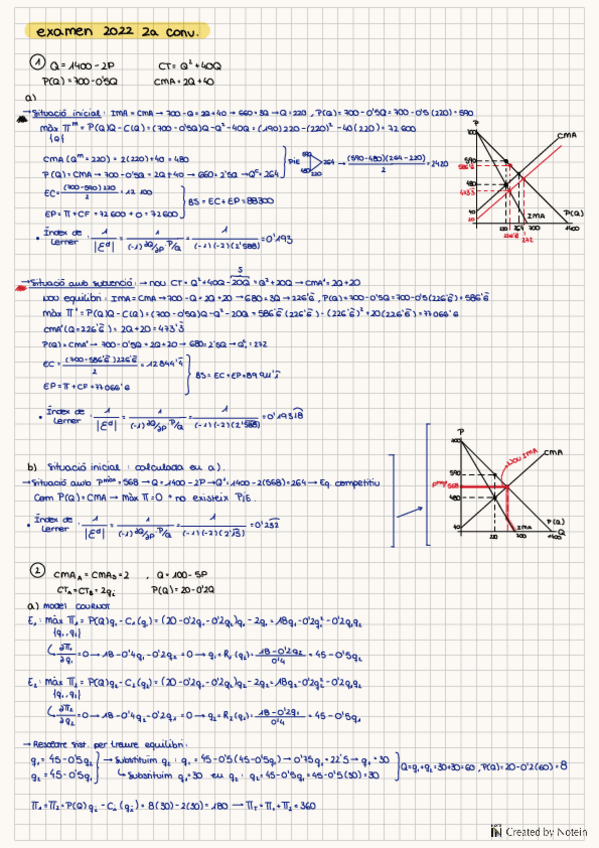 examen 2022 2a conv.
① Q = 1400 - 2P CT = Q² + 40Q
P(Q) = 700 - 0'5Q CMA = 2Q + 40
a)
→ Situació inicial: IMA = CMA → 700 - Q = 2Q + 40 → 660 = 3Q → Q = 220 , P(Q) = 700 - 0'5Q = 700 - 0'5(220) = 590
màx Π^m = P(Q)Q - C(Q) = (700 - 0'5Q)Q - Q² - 40Q = (590)220 - (220)² - 40(220) = 72600
{Q}
CMA(Q^m = 220) = 2(220) + 40 = 480
P(Q) = CMA → 700 - 0'5Q = 2Q + 40 → 660 = 2'5Q → Q* = 264
PIE 590 480 220 264 → (590-480)(264-220) / 2 = 2420
EC = (700-590)220 / 2 = 12100
EP = Π + CF = 72600 + 0 = 72600
BS = EC + EP = 88300
• Índex de Lerner : 1/|Ɛᵈ| = 1/(-1) ∂Q/∂P P/Q = 1/(-1)(-2)(2'588) = 0'193
P 700 590 586'6 480 473'3 40 20 CMA P(Q) IMA 220 264 700 1400 226'6 272
→ Situació amb subvenció: → nou CT = Q² + 40Q - 20Q = Q² + 20Q → CMA' = 2Q + 20
S
Nou equilibri: IMA = CMA → 700 - Q = 2Q + 20 → 680 = 3Q → 226'6 , P(Q) = 700 - 0'5Q = 700 - 0'5(226'6) = 586'6
màx Π' = P(Q)Q - C(Q) = (700 - 0'5Q)Q - Q² - 20Q = 586'6(226'6) - (226'6)² + 20(226'6) = 77066'6
CMA'(Q = 226'6) = 2Q + 20 = 473'3
P(Q) = CMA' → 700 - 0'5Q = 2Q + 20 → 680 = 2'5Q → Q*' = 272
EC = (700 - 586'6)226'6 / 2 = 12844'4
EP = Π + CF = 77066'6
BS = EC + EP = 89911'1
• Índex de Lerner : 1/|Ɛᵈ| = 1/(-1) ∂Q/∂P P/Q = 1/(-1)(-2)(2'588) = 0'19318
b) Situació inicial: calculada en a).
→ Situació amb P^màx = 568 → Q = 1400 - 2P → Q* = 1400 - 2(568) = 264 → Eq. competitiu
Com P(Q) = CMA → màx Π = 0 · no existeix PIE.
• Índex de Lerner : 1/|Ɛᵈ| = 1/(-1) ∂Q/∂P P/Q = 1/(-1)(-2)(2'15) = 0'232
P 700 590 P^màx 568 480 40 NOU IMA CMA P(Q) Q 220 IMA 1400
② CMA_A = CMA_B = 2 , Q = 100 - 5P
CT_A = CT_B = 2qᵢ P(Q) = 20 - 0'2Q
a) model COURNOT
E₁: màx Π₁ = P(Q)q₁ - C₁(q₁) = (20 - 0'2q₁ - 0'2q₂)q₁ - 2q₁ = 18q₁ - 0'2q₁² - 0'2q₁q₂
{q₁, q₂}
∂Π₁/∂q₁ = 0 → 18 - 0'4q₁ - 0'2q₂ = 0 → q₁ = R₁(q₂): 18 - 0'2q₂ / 0'4 = 45 - 0'5q₂
E₂: màx Π₂ = P(Q)q₂ - C₂(q₂) = (20 - 0'2q₁ - 0'2q₂)q₂ - 2q₂ = 18q₂ - 0'2q₂² - 0'2q₁q₂
{q₁, q₂}
∂Π₂/∂q₂ = 0 → 18 - 0'4q₂ - 0'2q₁ = 0 → q₂ = R₂(q₁): 18 - 0'2q₁ / 0'4 = 45 - 0'5q₁
→ Resoldre sist. per traure equilibri:
q₁ = 45 - 0'5q₂ → Substituïm q₂: q₁ = 45 - 0'5(45 - 0'5q₁) → 0'75q₁ = 22'5 → q₁ = 30
q₂ = 45 - 0'5q₁ ↳ Substituïm q₁ = 30 en q₂: q₂ = 45 - 0'5q₁ = 45 - 0'5(30) = 30
Q = q₁ + q₂ = 30 + 30 = 60 , P(Q) = 20 - 0'2(60) = 8
Π₁ = Π₂ = P(Q)q₂ - C₂(q₂) = 8(30) - 2(30) = 180 → Π_T = Π₁ + Π₂ = 360
Created by Notein